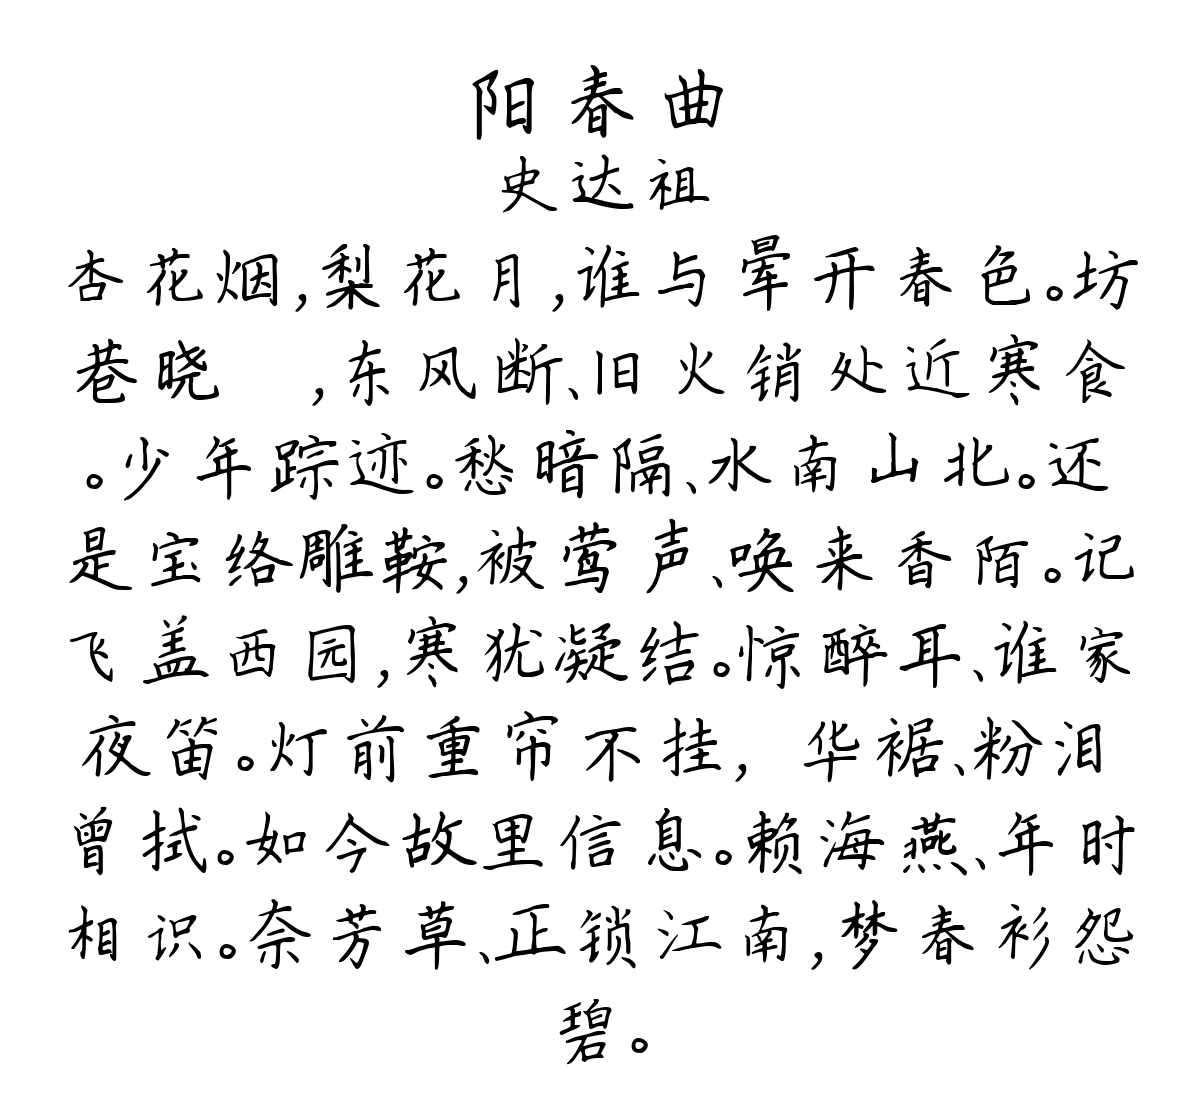 阳春曲
史达祖
杏花烟,梨花月,谁与晕开春色。坊
巷晓　,东风断、旧火销处近寒食
。少年踪迹。愁暗隔、水南山北。还
是宝络雕鞍,被莺声、唤来香陌。记
飞盖西园,寒犹凝结。惊醉耳、谁家
夜笛。灯前重帘不挂,　华裾、粉泪
曾拭。如今故里信息。赖海燕、年时
相识。奈芳草、正锁江南,梦春衫怨
碧。